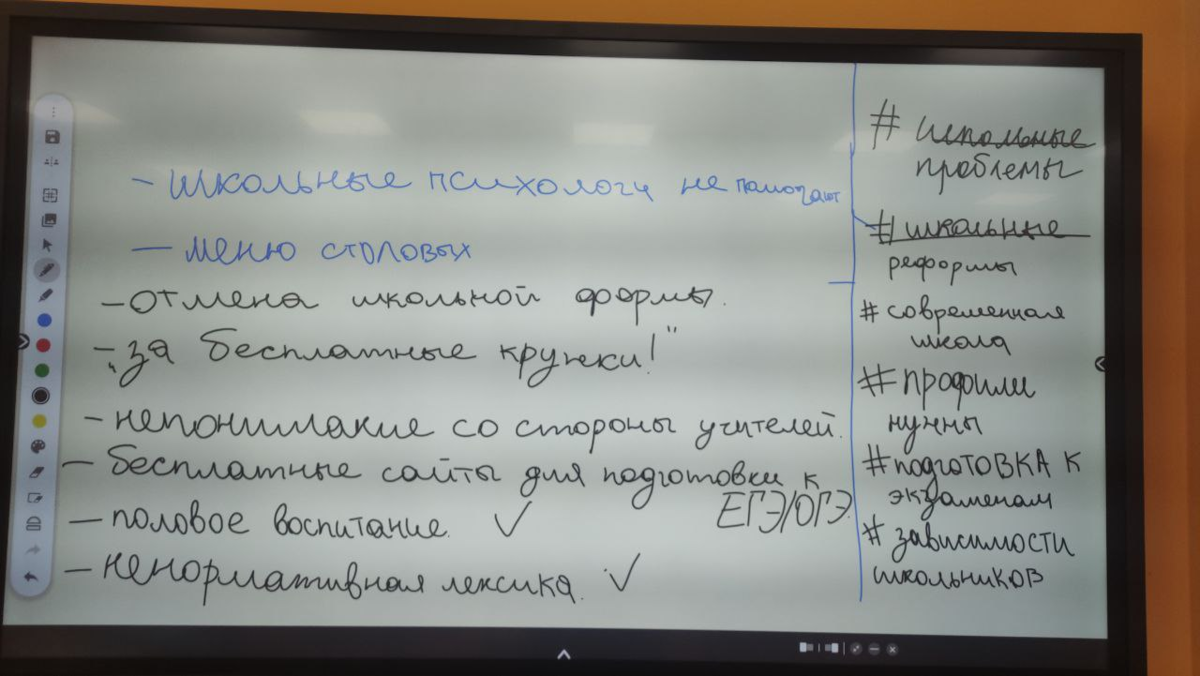 - школьные психологи не помогают
- меню столовых
- отмена школьной формы.
- "за бесплатные кружки!"
- непонимание со стороны учителей.
- бесплатные сайты для подготовки к
ЕГЭ/ОГЭ.
- половое воспитание. ✓
- ненормативная лексика. ✓
# школьные
проблемы
# школьные
реформы
# современная
школа
# профили
нужны
# подготовка к
экзаменам
# зависимости
школьников